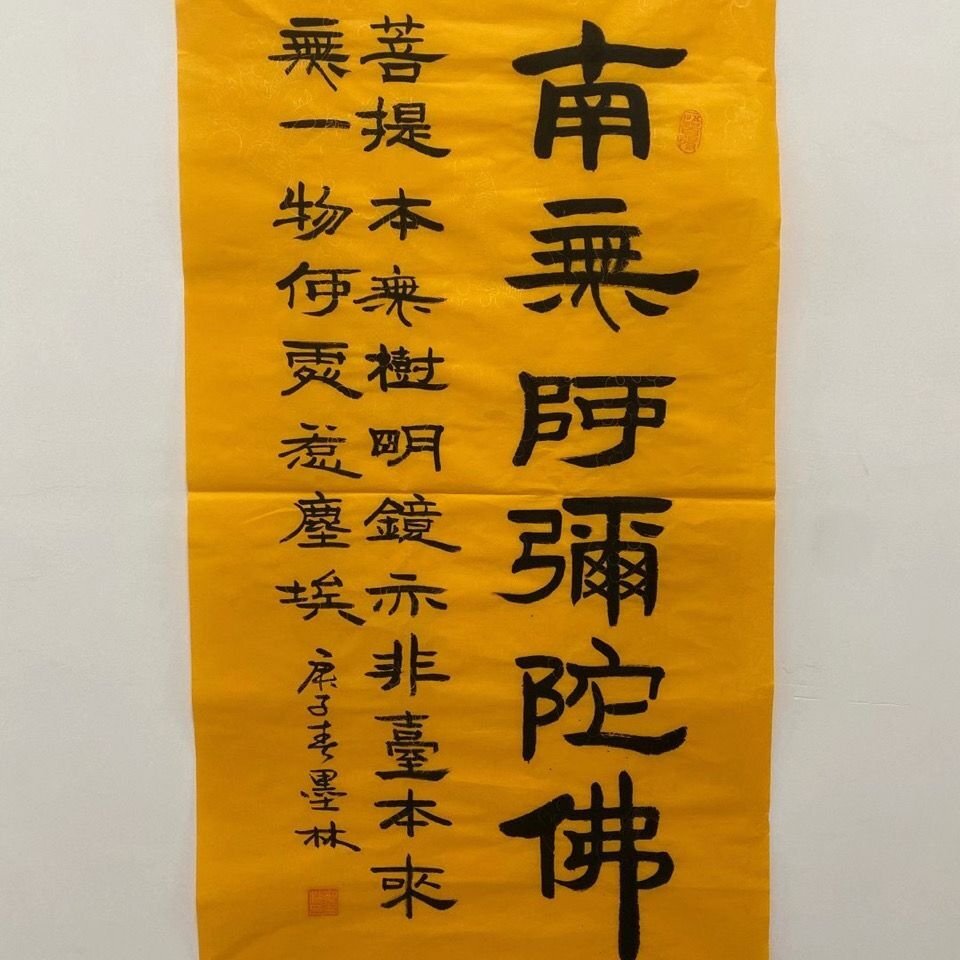 南無阿彌陀佛
菩提本無樹明鏡亦非臺本來
無一物何處惹塵埃
庚子春墨林